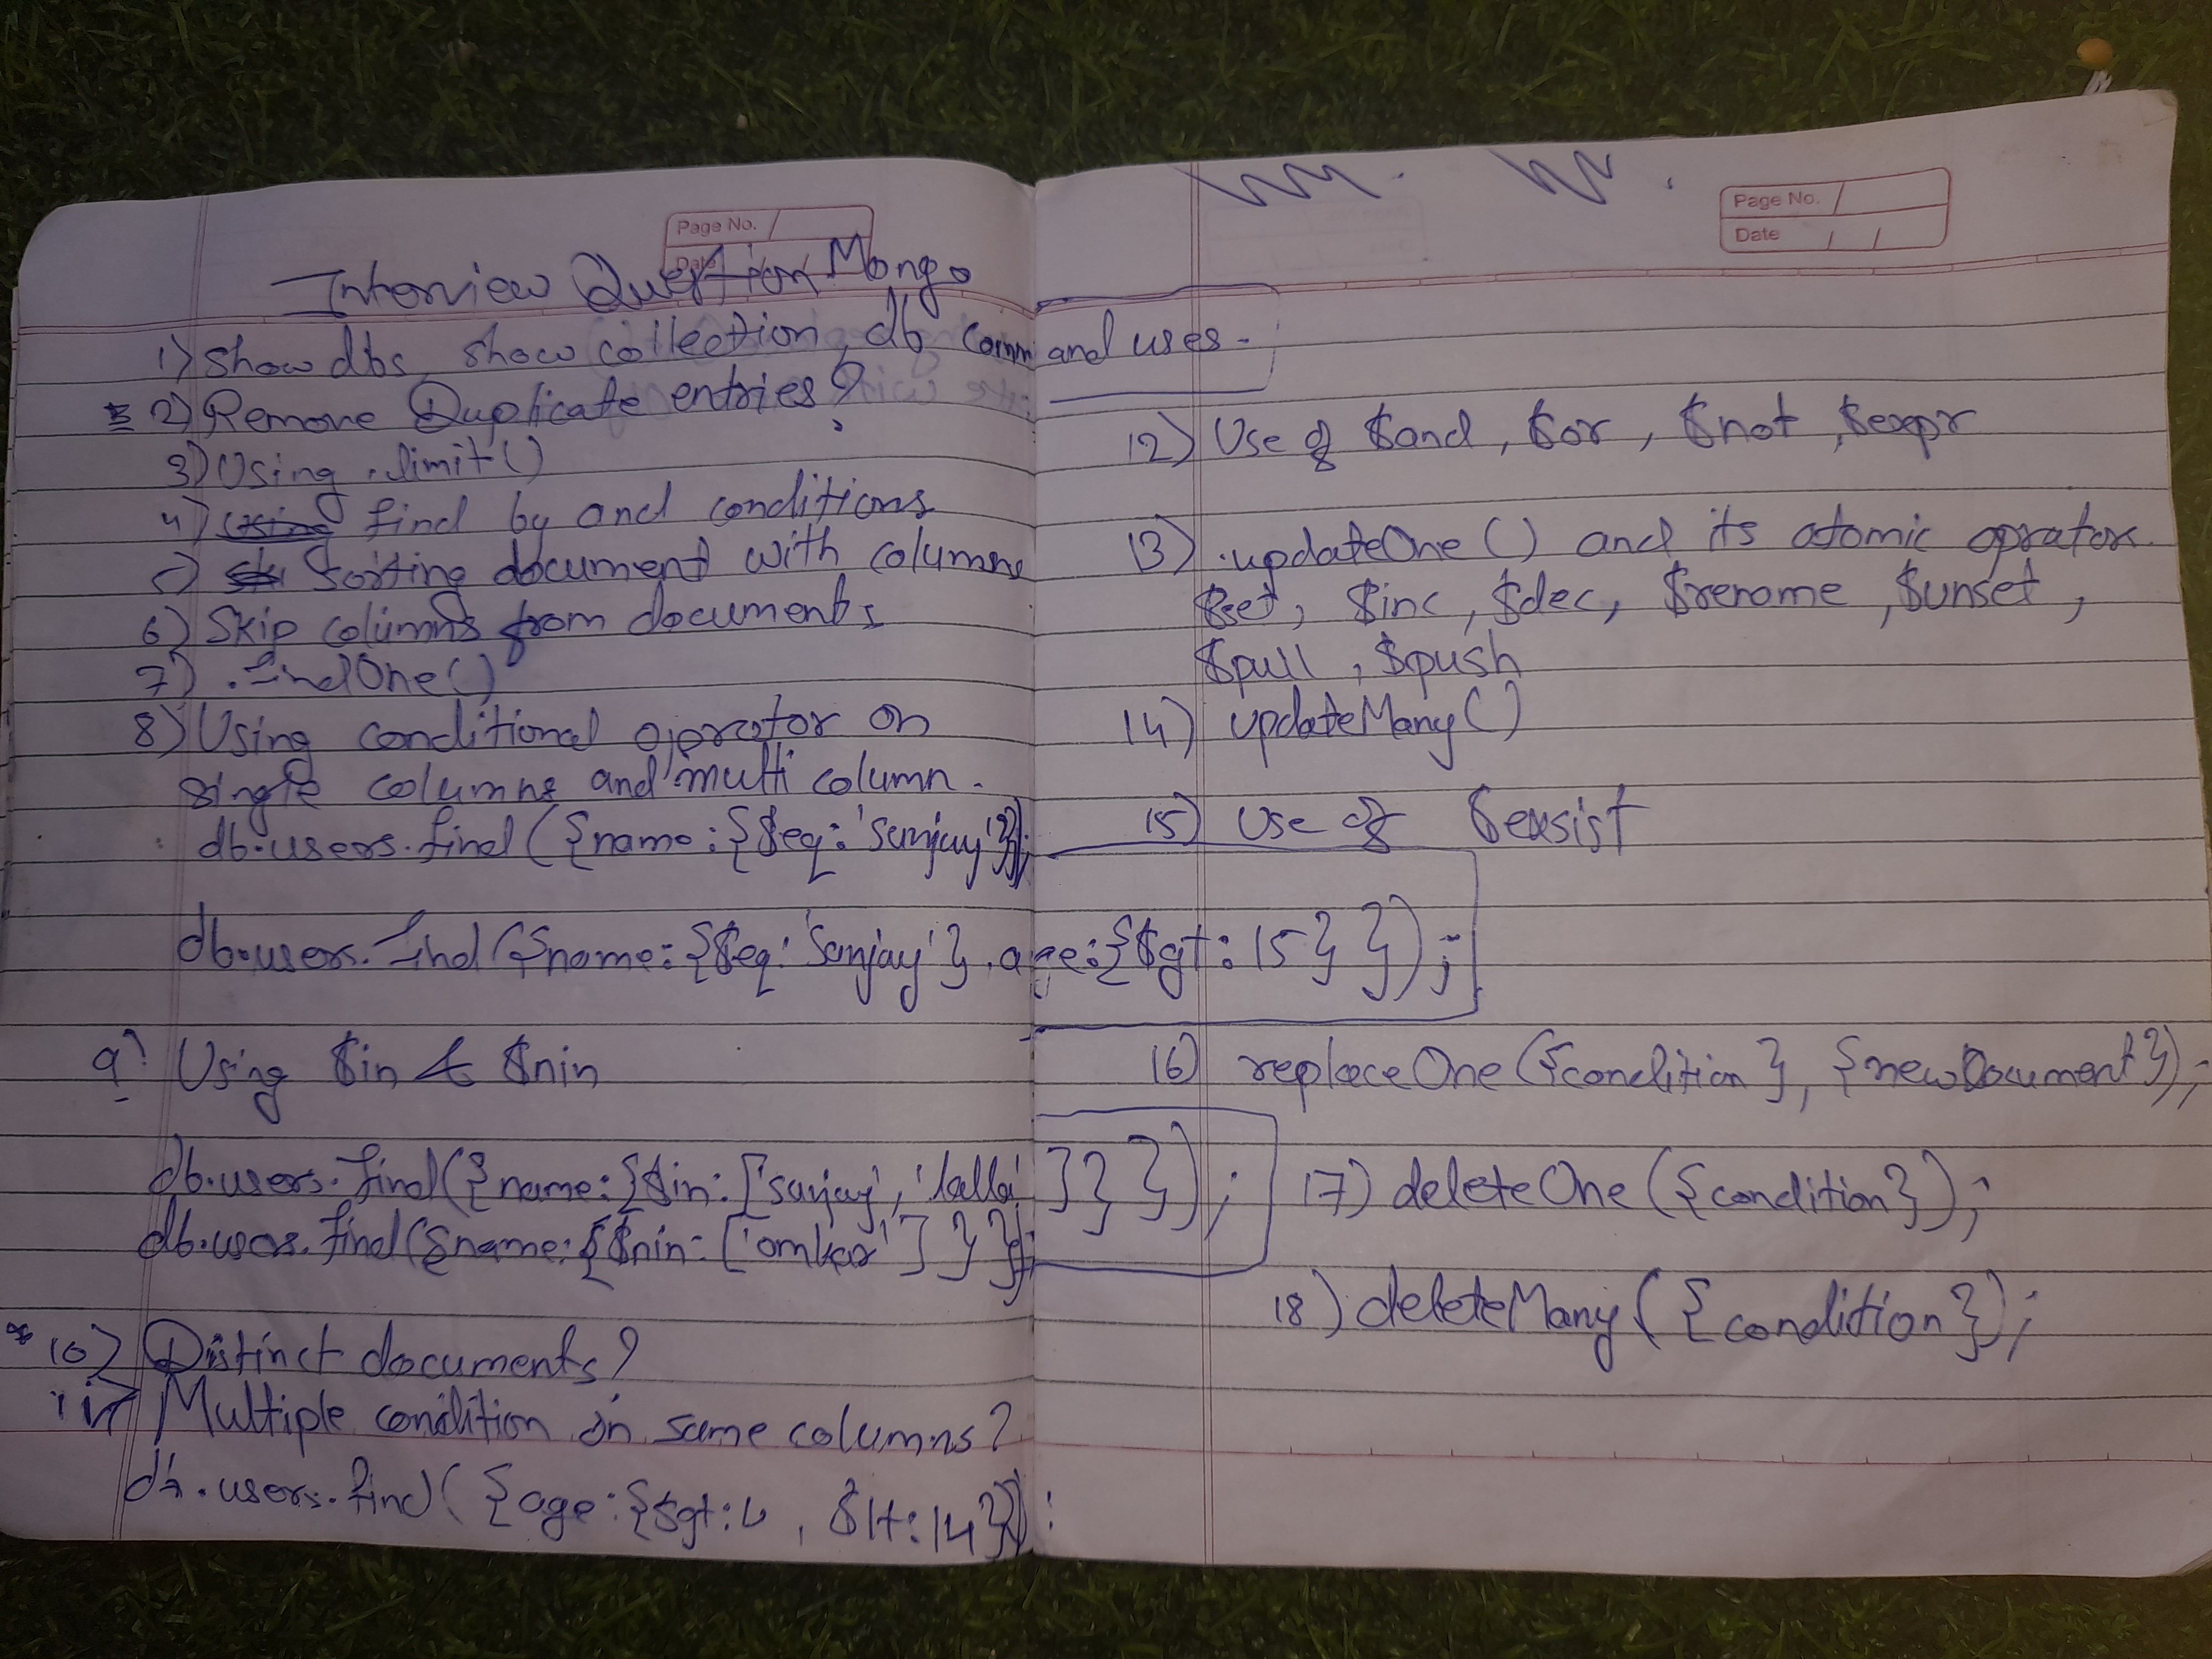 Page No.
Date
Interview Question Mongo
1) Show dbs, show collection, db command uses.
2) Remove Duplicate entries?
3) Using .limit()
4) find by and conditions
5) Sorting document with columns
6) Skip columns from documents
7) .findOne()
8) Using conditional oprator on
single columns and multi column.
db.users.find({name:{$eq:'Sanjay'}});
db.users.find({name:{$eq:'Sanjay'}, age:{$gt:15}});
9) Using $in & $nin
db.users.find({name:{$in:['sanjay','lalla']}});
db.users.find({name:{$nin:['omkar']}});
* 10) Distinct documents?
11) Multiple condition on same columns?
db.users.find({age:{$gt:6, $lt:14}});
Page No.
Date
12) Use of $and, $or, $not, $expr
13) .updateOne() and its atomic oprator.
$set, $inc, $dec, $rename, $unset,
$pull, $push
14) updateMany()
15) Use of $exsist
16) replaceOne({condition}, {newDocument});
17) deleteOne({condition});
18) deleteMany({condition});